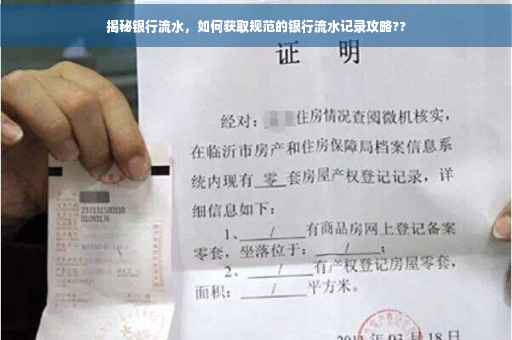 揭秘银行流水，如何获取规范的银行流水记录攻略??
证 明
经对：住房情况查阅微机核实，
在临沂市房产和住房保障局档案信息系
统内现有 零 套房屋产权登记记录，详
细信息如下：
1、 / 有商品房网上登记备案
零套，坐落位于： / ；
2、 / 有产权登记房屋零套，
面积： / 平方米。